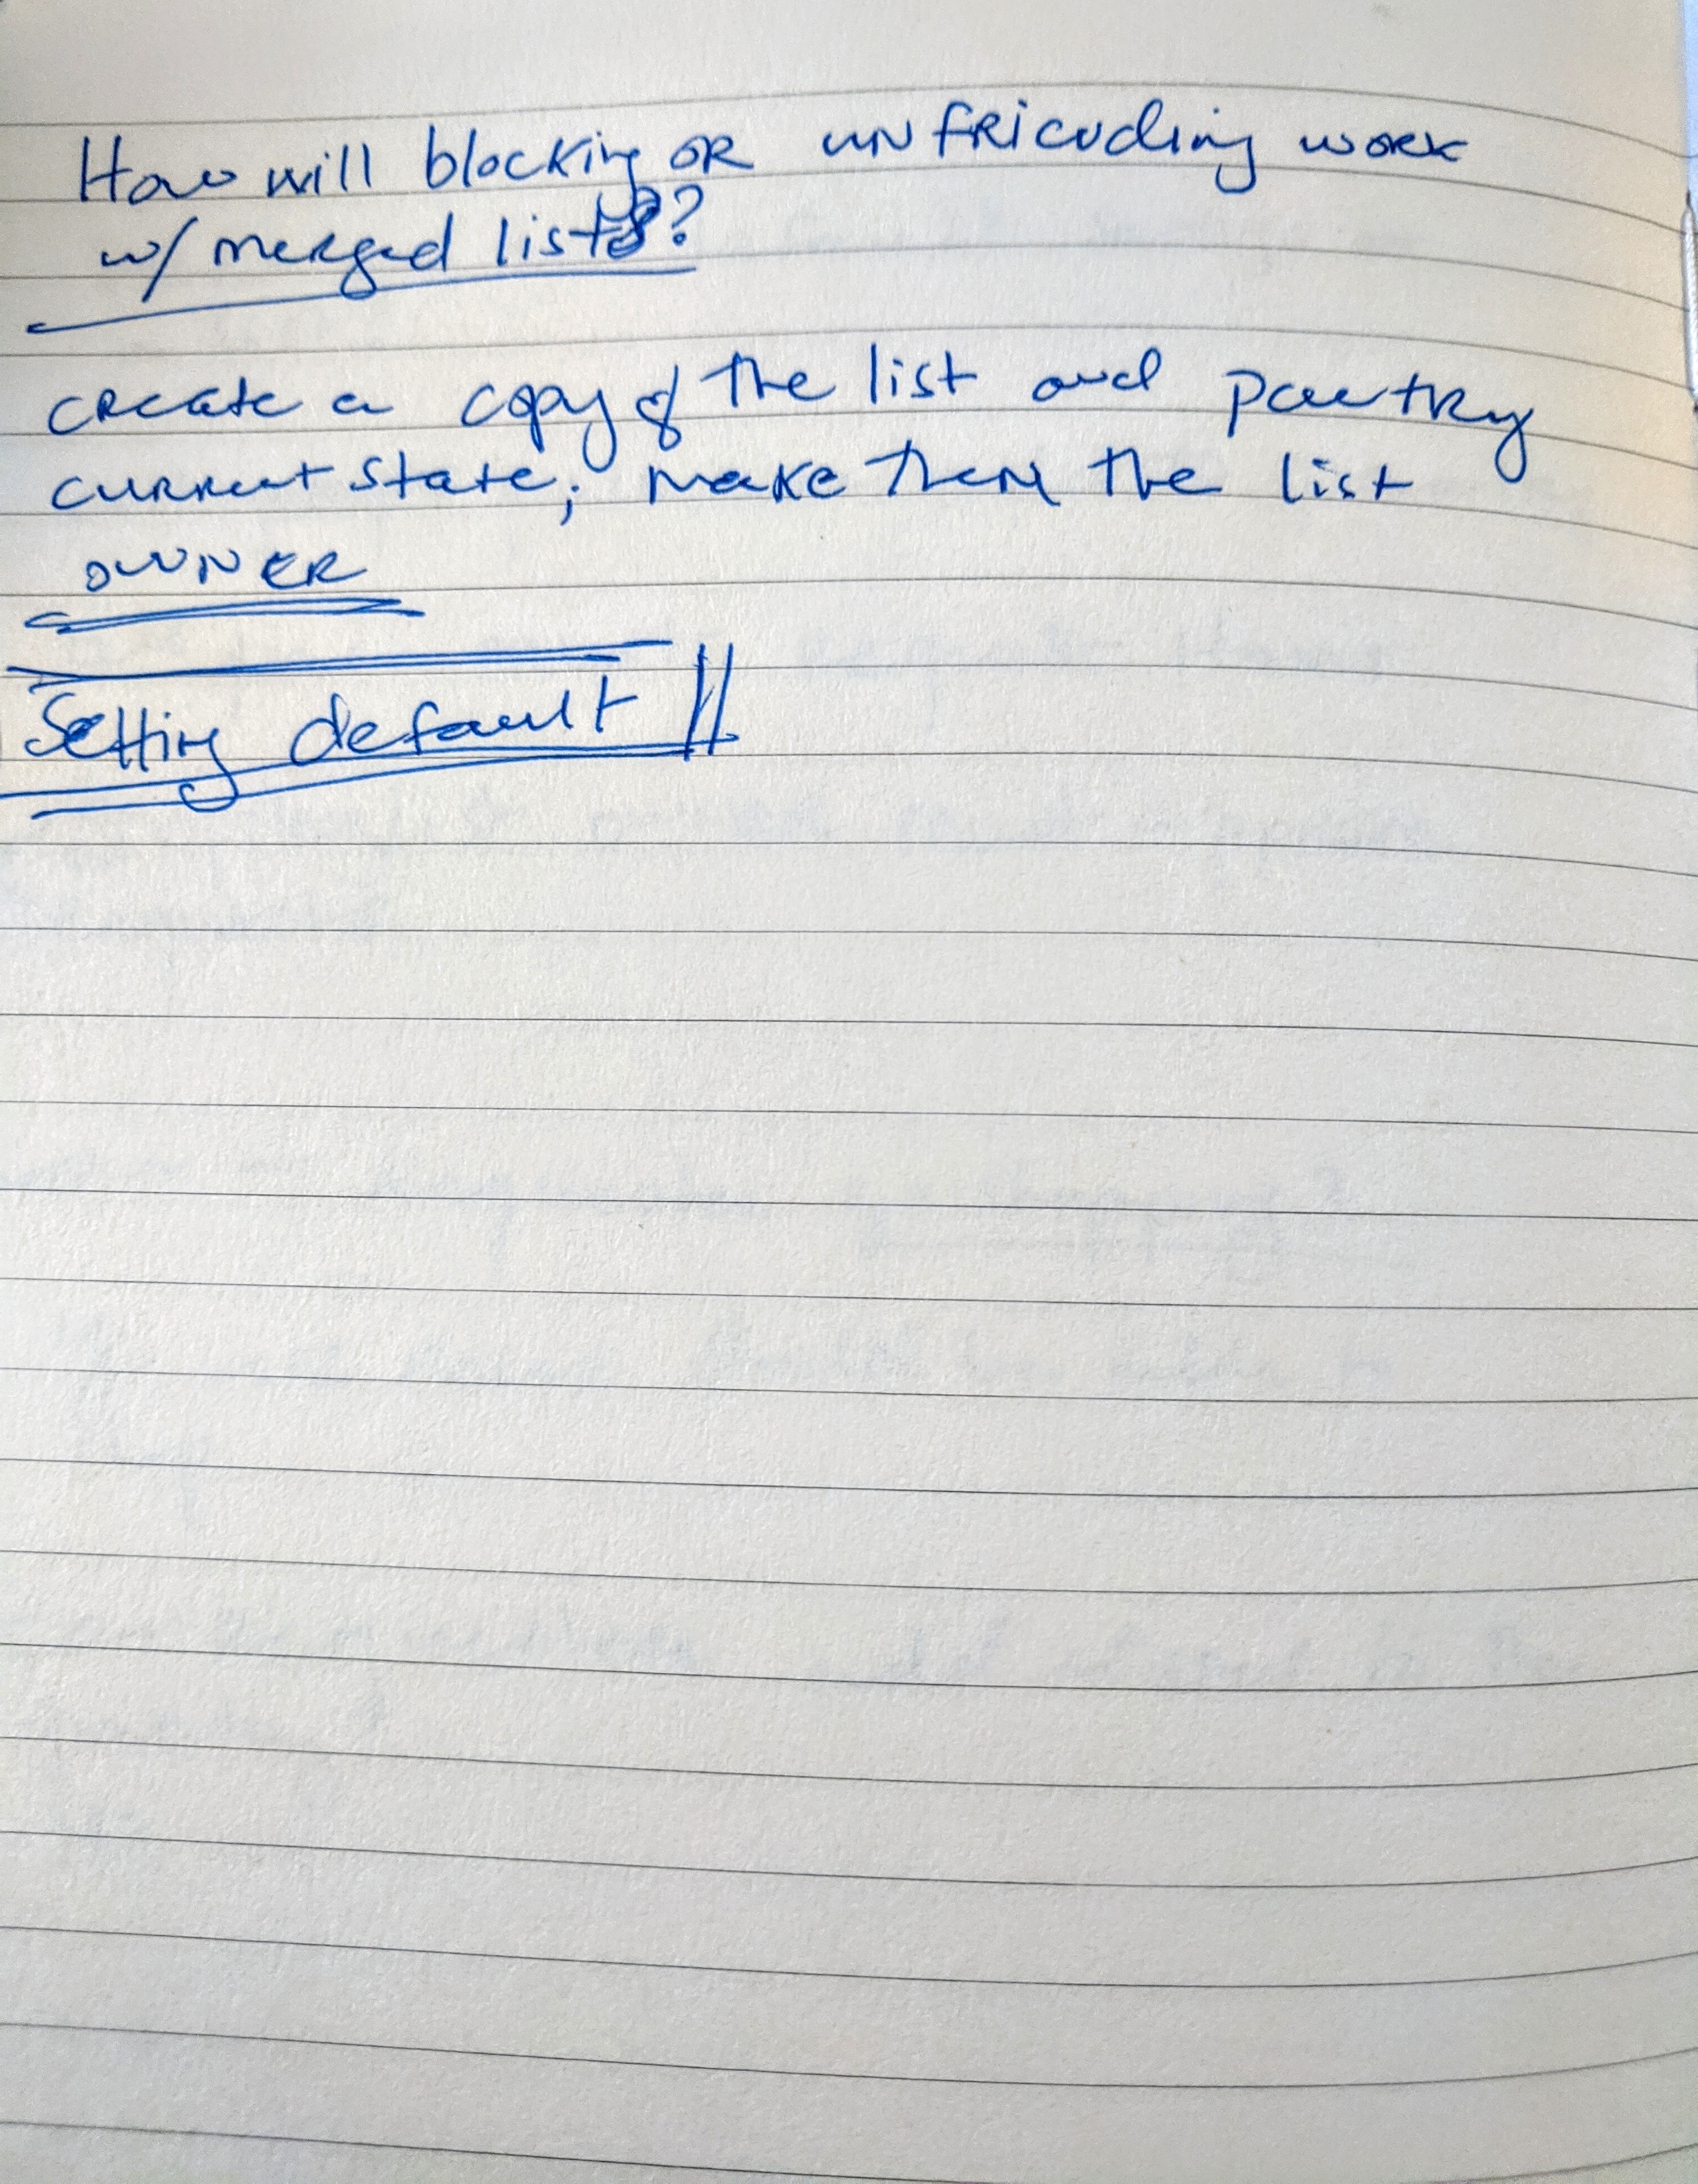 How will blocking OR unfriending work
w/ merged lists?
create a copy of the list and pantry
current state; make them the list
OWNER
Setting default !!